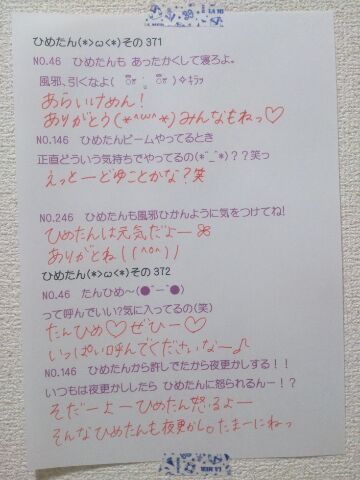 ひめたん(*>ω<*)その371
NO.46 ひめたんも あったかくして寝ろよ。
風邪、引くなよ( ㆆ ͜ ㆆ )✧ｷﾗｯ
あらいけめん!
ありがとう(*^ω^*)みんなもねっ♡
NO.146 ひめたんビームやってるとき
正直どういう気持ちでやってるの(*^_^*)??笑っ
えっとーどゆことかな?笑
NO.246 ひめたんも風邪ひかんように気をつけてね!
ひめたんは元気だよー
ありがとね!(^o^)/
ひめたん(*>ω<*)その372
NO.46 たんひめ〜(●ˇーˇ●)
って呼んでいい?気に入ってるの(笑)
たんひめ♡ぜひー♡
いっぱい呼んでくださいなー♪
NO.146 ひめたんから許しでたから夜更かしする!!
いつもは夜更かししたら ひめたんに怒られるんー!?
そだーよーひめたん怒るよー
そんなひめたんも夜更かし。たまーにねっ